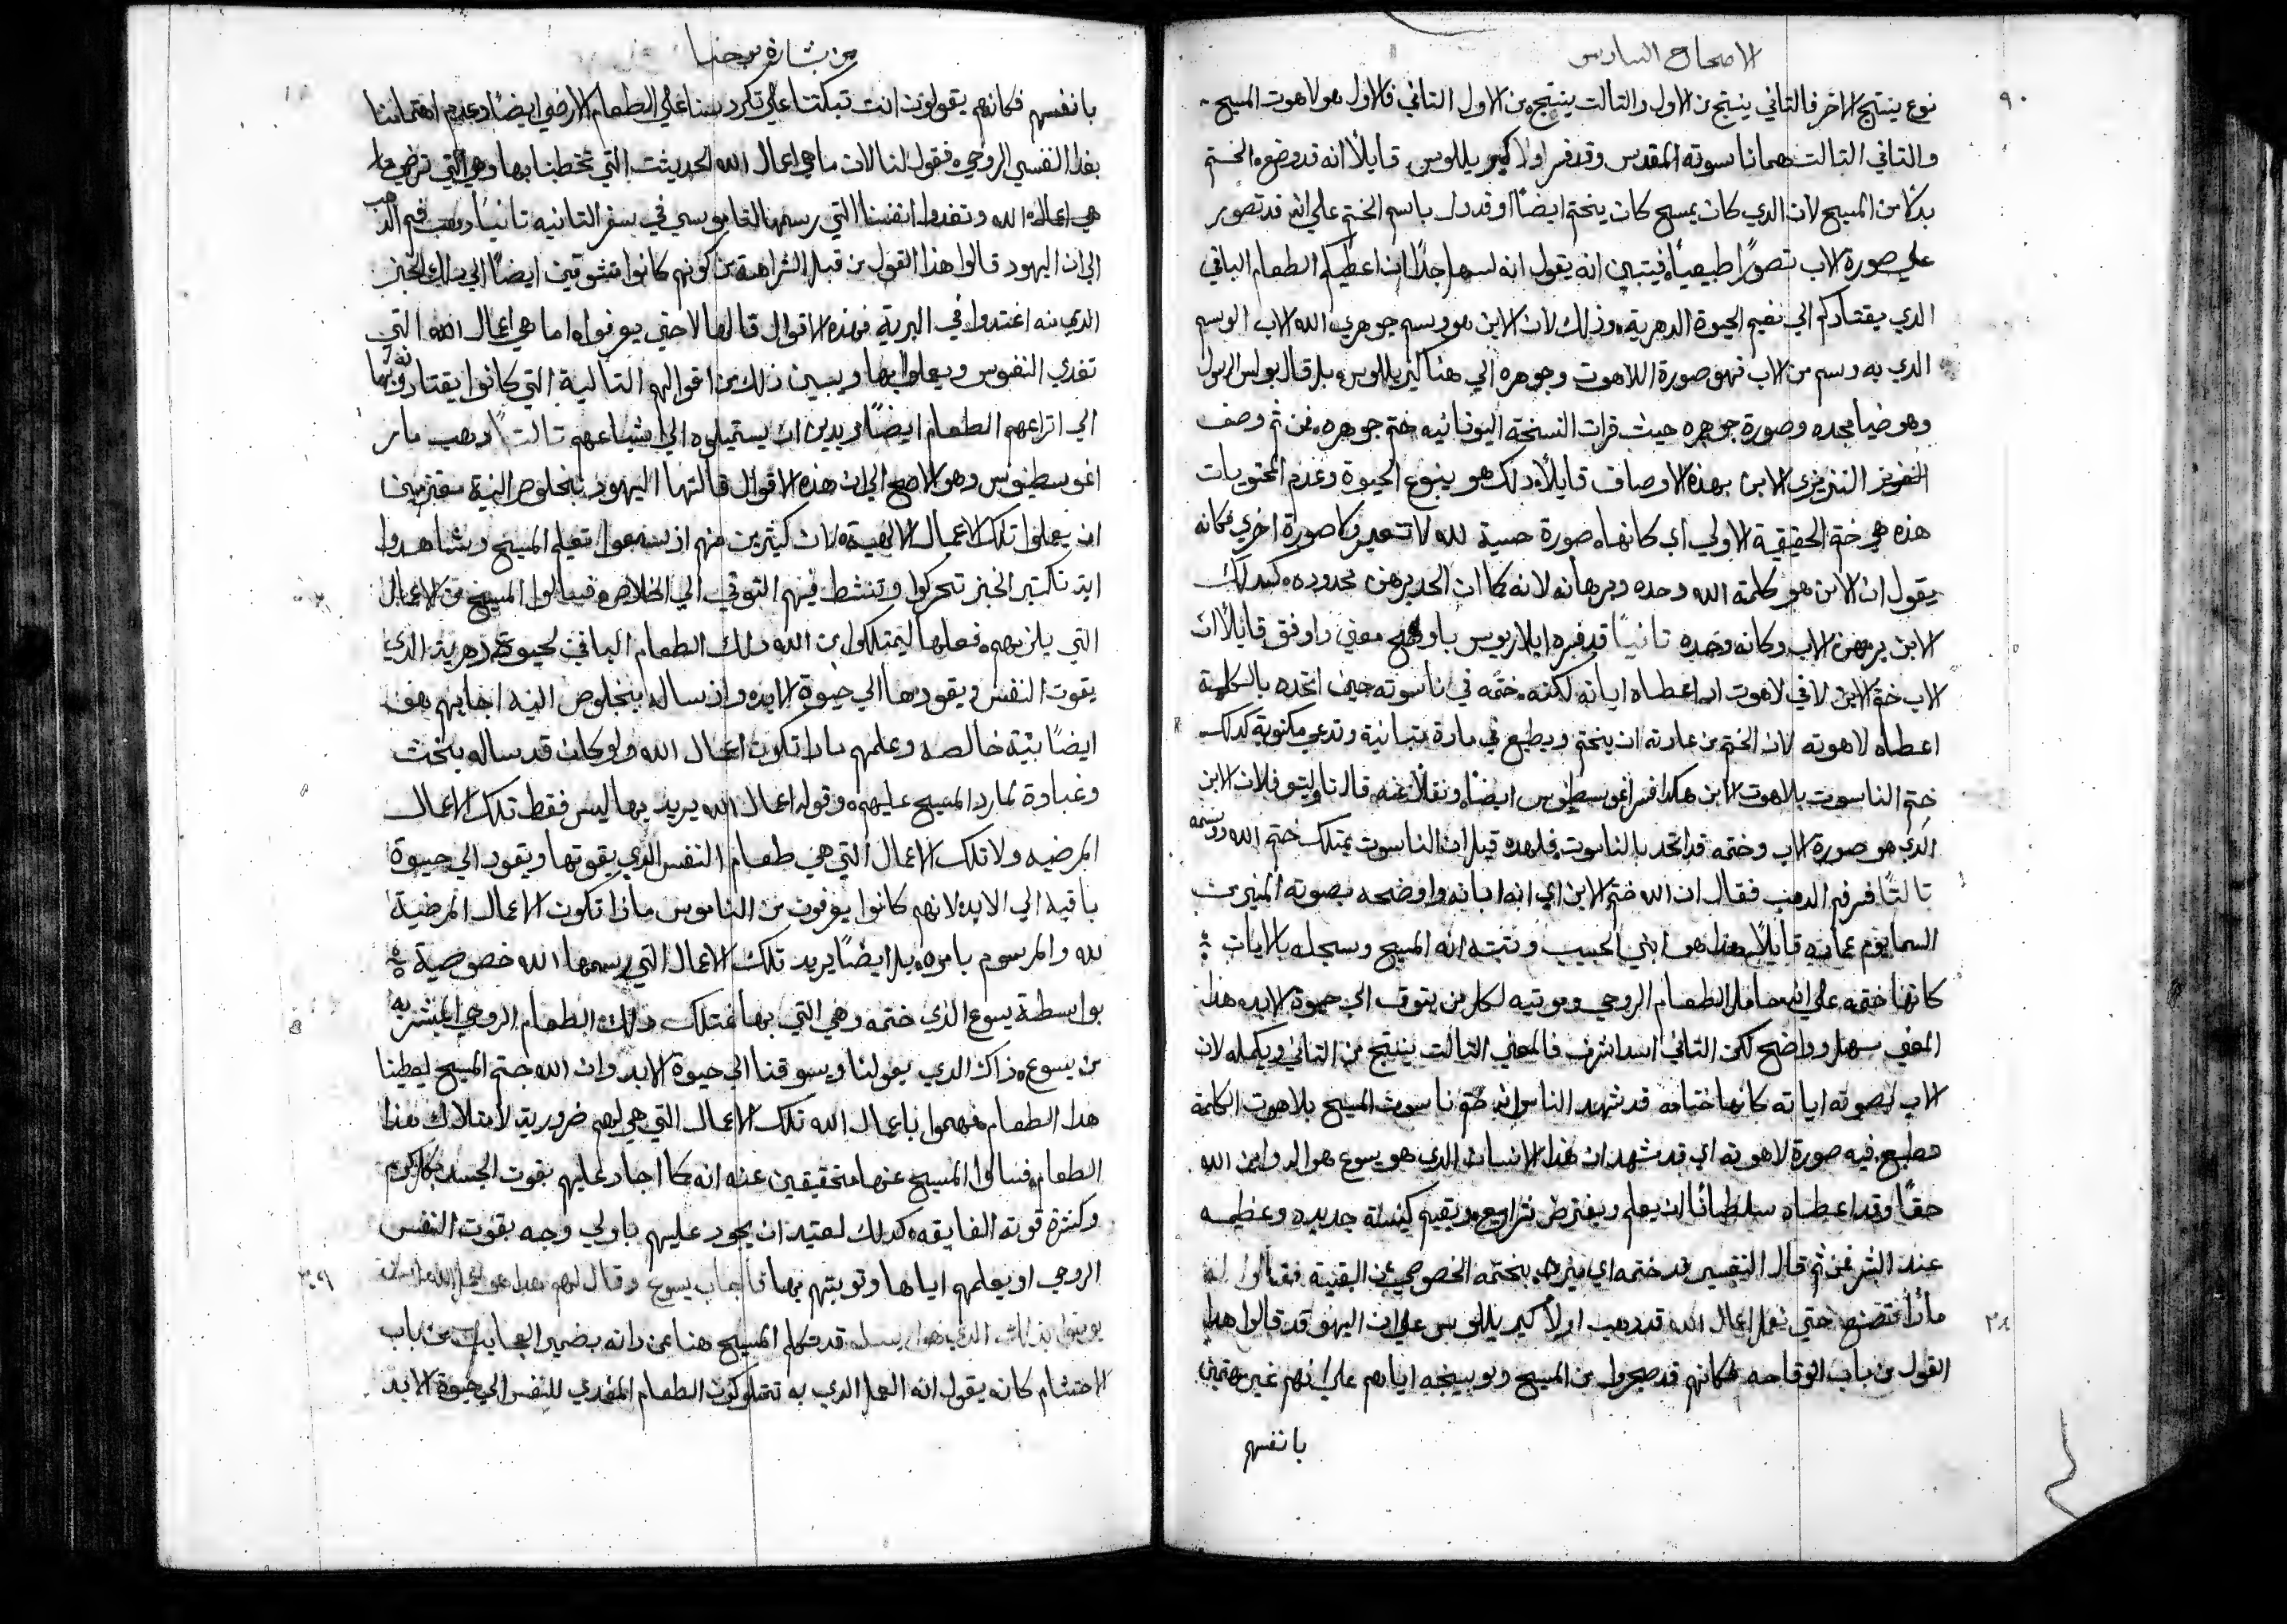 الاصحاح السادس
٩٠
نوع ينتج الاخر فالتاني ينتج من الاول والتالت ينتج من الاول التاني فالاول هو لاهوت المسيح
والتاني التالت هما ناسوته المقدس وقد فسر اولا كيريللوس قايلًا انه قد وضع الختم
بدلًا من المسيح لان الدي كان يمسح كان يختم ايضًا او قد دل باسم الختم علي انه قد تصور
علي صورة الاب تصورًا طبيعيًا فيتبين انه يقول انه لسهل جدًا ان اعطيكم الطعام الباقي
الدي يقتادكم الي نعيم الحيوة الدهرية وذلك لان الابن هو وسم جوهري لله الاب الوسم
الدي به وسم من الاب فهو صورة اللاهوت وجوهره الي هنا كيريللوس بل قال بولس الرسول
وهو ضيا مجده وصورة جوهره حيث قرات النسخة اليونانيه ختم جوهره فمن ثم وصف
النزينزي الابن بهذه الاوصاف قايلًا دلك هو ينبوع الحيوة وعدم
هذه هي ختم الحقيقية الاولي اي كانها صورة حسية لله لا تتغير وكا صورة اخري فكانه
يقول ان الابن هو كلمة الله وحده وبرهانه لانه كما ان الحد يبرهن محدوده كدلك
الابن يبرهن الاب وكانه وحده تانيًا قد فسره ايلاريوس باوضح معني واوفق قايلًا ان
الاب ختم الابن لا في لاهوت اد اعطاه اياته لكنه ختمه في ناسوته حين اتحده بالكلمة
اعطاه لاهوته لان الختم من عادته ان يختم ويطبع في مادة متبانية وتدعي مكتوبة كدلك
ختم الناسوت بلاهوت الابن هكدا فسر اغوسطينوس ايضًا ونقلًا عنه قال تاوليتو فلان الابن
الدي هو صورة الاب وختمه قد اتحد بالناسوت فلهده قيل ان الناسوت يمتلك ختم الله ووسمه
تالتًا فسر فم الدهب فقال ان الله ختم الابن اي انه ابانه واوضحه بصوته المنير من
السما يوم عماده قايلًا هذا هو ابني الحبيب وتبته انه المسيح وسجله بالايات
كانها ختمه علي انه حامل الطعام الروحي وموتيه لكل من يتوق الي حيوة الابد هذا
المعني سهل وواضح لكن التاني اسد اشرف فالمعني التالت ينتج من التاني ويكمله لان
الاب بصوته اياته كانها ختامه قد شهد الناس انه ختم ناسوت المسيح بلاهوت الكلمة
مطبع فيه صورة لاهوته اي قد شهد ان هذا الانسان الدي هو يسوع هو اله وابن الله
حقًا وقد اعطاه سلطانًا ان يعلم ويفترض شرايع ويقيم كنيسة جديده وعظيمه
عند الشر فمن ثم قال التفسير قد ختمه اي ميزه بختمه الخصوصي عن البقية فقالوا له
٢٨
ماذا نصنع حتي نعمل اعمال الله قد دهب اولًا كيريللوس علي ان اليهود قد قالوا هدا
القول من باب الوقاحه فكانهم قد ضجروا من المسيح وتوبيخه اياهم علي انهم غير مهتمين
بانفسهم
من بشارة يوحنا
بانفسهم فكانهم يقولون انت تبكتنا علي تكردسنا علي الطعام الارضي ايضًا وعدم اهتمامنا
بغدا النفسي الروحي فقول لنا الان ما هي اعمال الله الحديثت التي تخطبنا بها وهي التي ترضي
هي اعمال الله وتغدوا انفسنا التي رسمها لنا موسي في سفر التانيه تانيًا دهب فم الدهب
الي ان اليهود قالوا هذا القول من قبل الشراهة من كونهم كانوا متشوقين ايضًا الي دلك الخبز
الدي منه اغتدوا في البرية فهذه الاقوال قالوها لا حتي يعرفوا ما هي اعمال الله التي
تغدي النفوس ويعملوا بها ويبين ذلك من اقوالهم التالية التي كانوا يقتادونه بها
الي اتراعهم الطعام ايضًا مريدين ان يستميلوه الي اشباعهم تالتًا دهب مار
اغوسطينوس وهو الاصح الي ان هذه الاقوال قالتها اليهود بخلوص النية معتزمين
ان يعملوا تلك الاعمال الالهية لان كثيرين منهم اذ سمعوا تعليم المسيح وشاهدوا
اية تكتير الخبز تحركوا وتنشط فيهم التوق الي الخلاص فسالوا المسيح عن الاعمال
التي يلزمهم فعلها ليمتلكوا من الله دلك الطعام الباقي لحيوة دهرية الدي
يقوت النفس ويقودها الي حيوة الابد واذ ساله بخلوص النيه اجابهم هو
ايضًا بنية خالصه وعلمهم ماذا تكون اعمال الله ولو كان قد ساله بخبث
وغباوة لما رد المسيح عليهم وقوله اعمال الله يريد بها ليس فقط تلك الاعمال
المرضيه ولا تلك الاعمال التي هي طعام النفس الدي يقوتها ويقود الي حيوة
باقيه الي الابد لانهم كانوا يعرفون من الناموس ماذا تكون الاعمال المرضية
لله والمرسوم بامره بل ايضًا يريد تلك الاعمال التي رسمها الله خصوصية
بواسطة يسوع الذي ختمه وهي التي بها نمتلك دلك الطعام الروحي المبشر به
من يسوع ذاك الدي يعولنا ويسوقنا الي حيوة الابد وان الله ختم المسيح ليعطينا
هدا الطعام ففهموا باعمال الله تلك الاعمال التي هي لهم ضرورية لامتلاك هدا
الطعام فسالوا المسيح عنها متحققين عنه انه كما اجاد عليهم بقوت الجسد بكل كرم
وكثرة قوته الفايقه كدلك لعتيد ان يجود عليهم باولي وجه بقوت النفس
٢٩
الروحي او يعلمهم اياها وتوتيهم بها فاجاب يسوع وقال لهم هدا هو عمل الله ان
الدي هو ارسله قد تكلم المسيح هنا عن ذاته بضمير الغايب من باب
الاحتشام كانه يقول انه العمل الدي به تمتلكون الطعام المغدي للنفس الي حيوة الابد